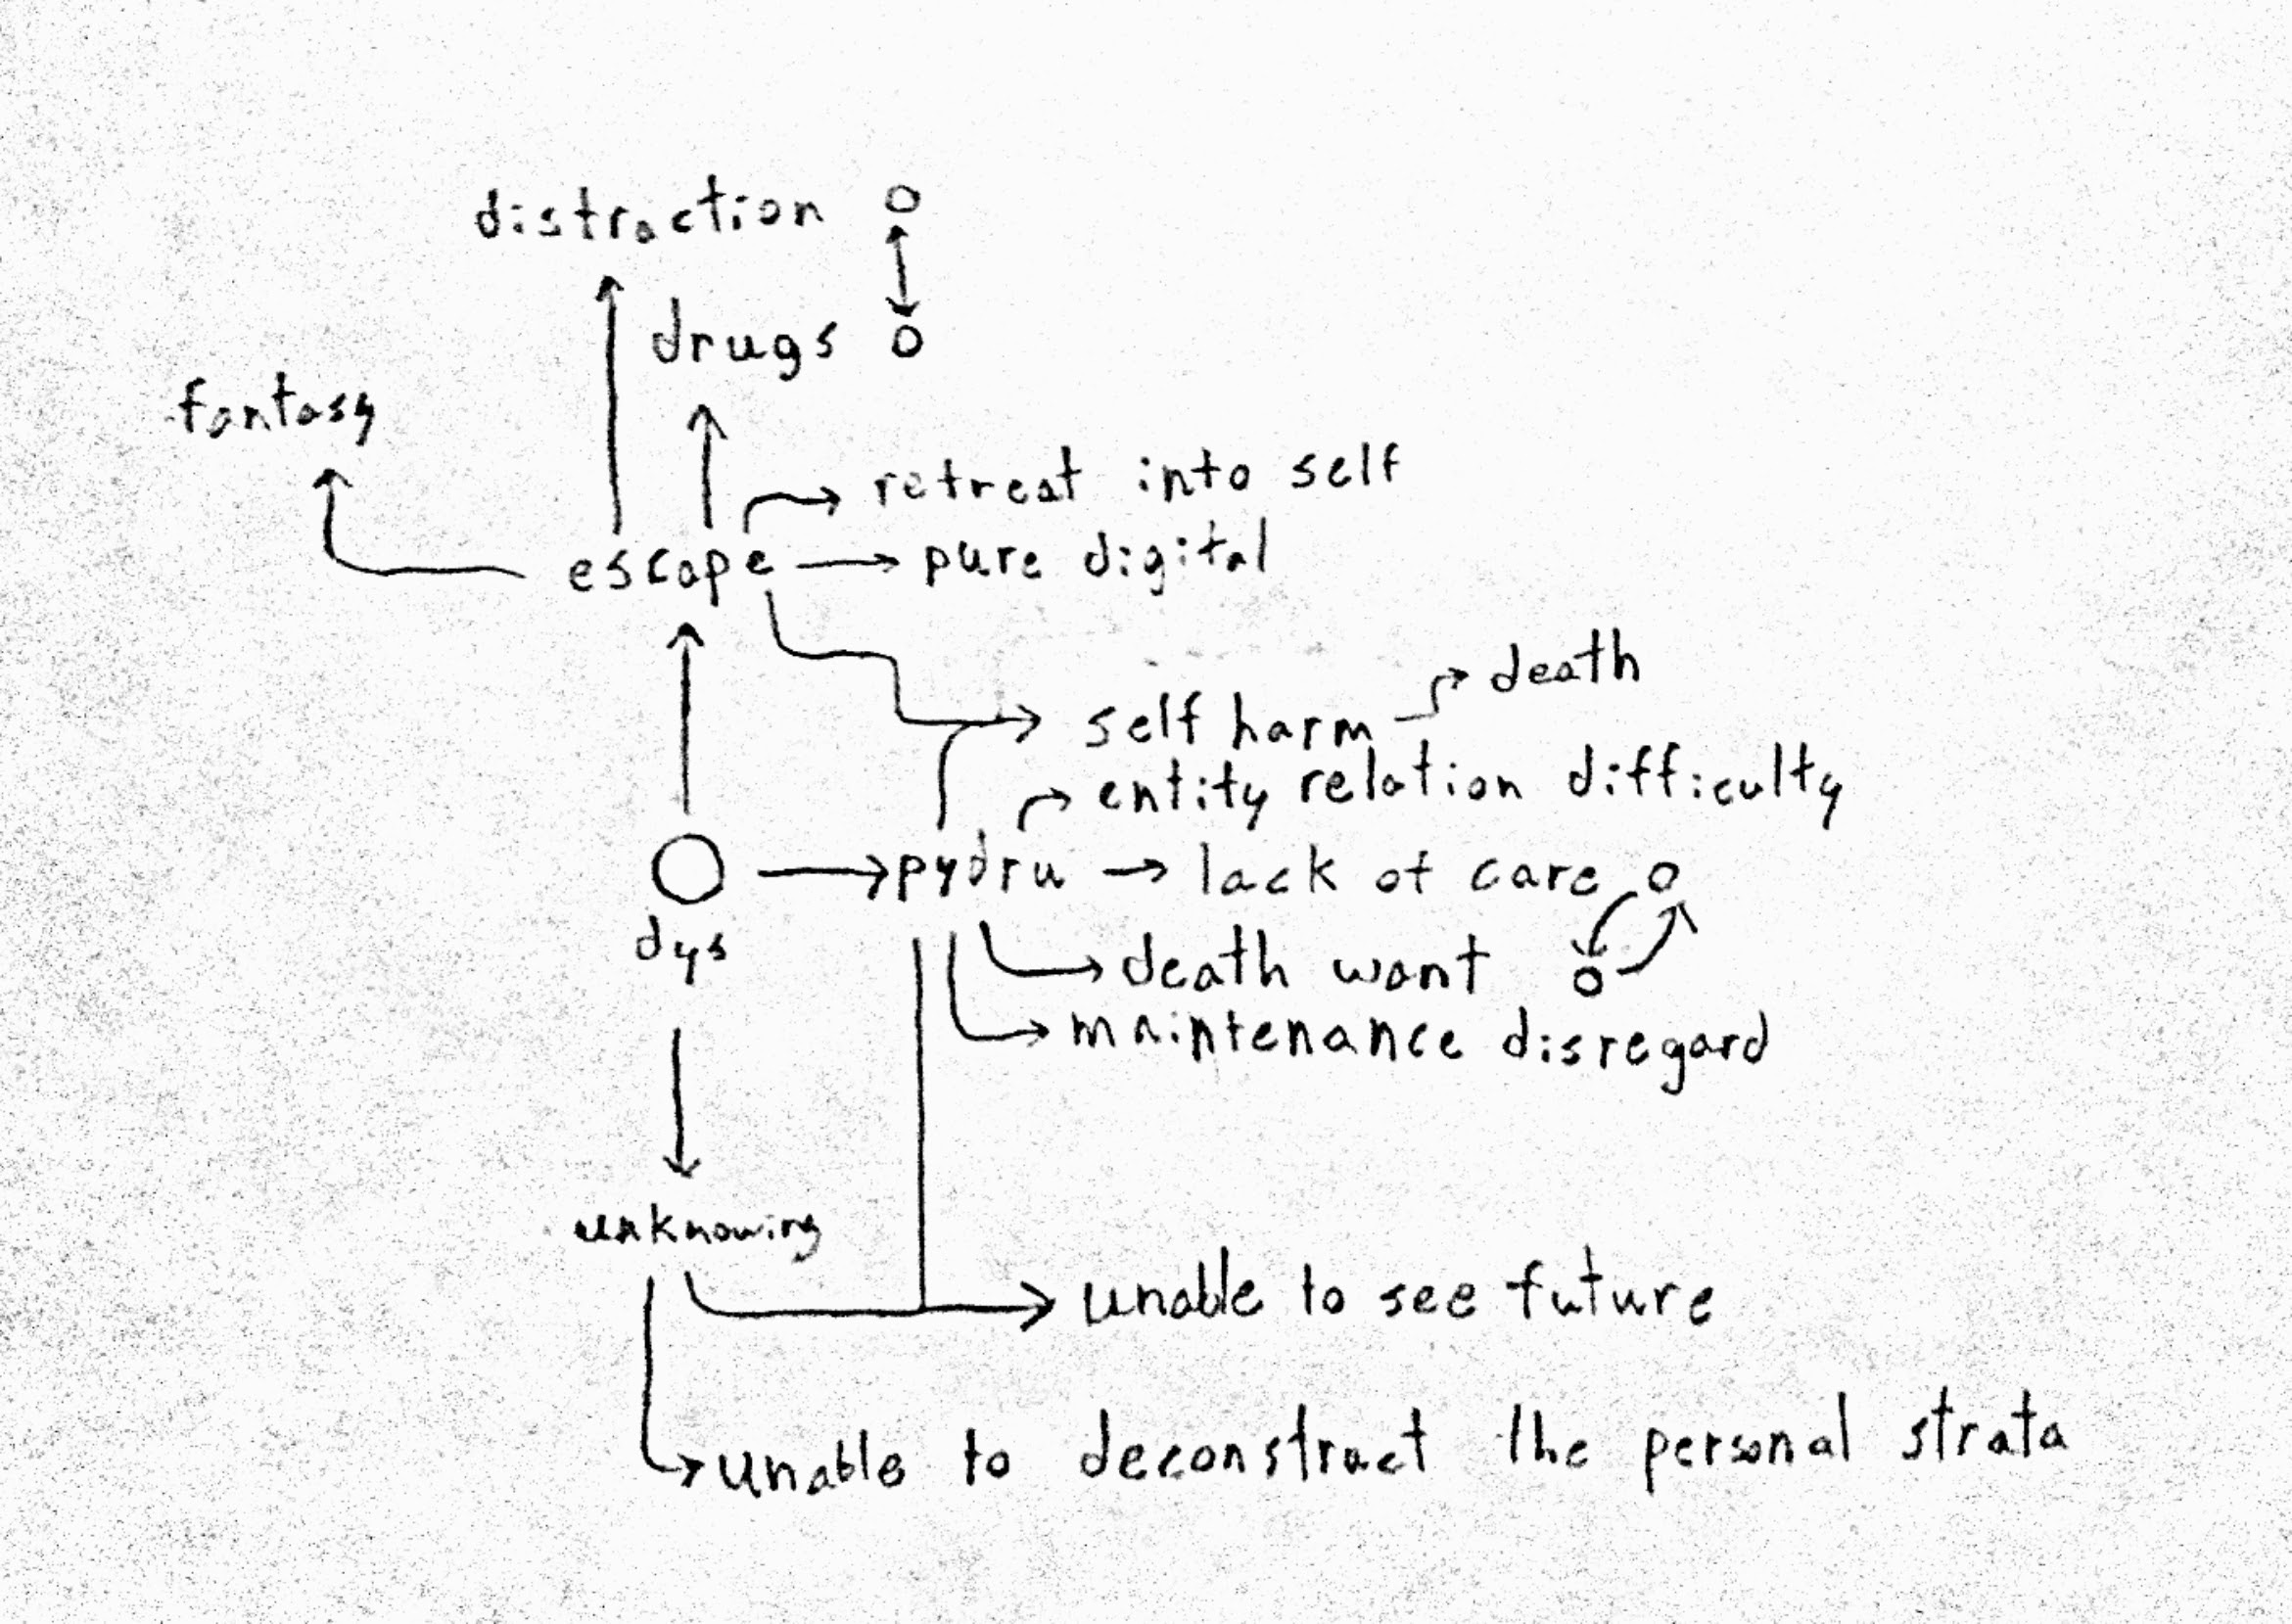 distraction
drugs
fantasy
retreat into self
escape
pure digital
death
self harm
entity relation difficulty
pydru
lack of care
dys
death want
maintenance disregard
unknowing
unable to see future
unable to deconstruct the personal strata